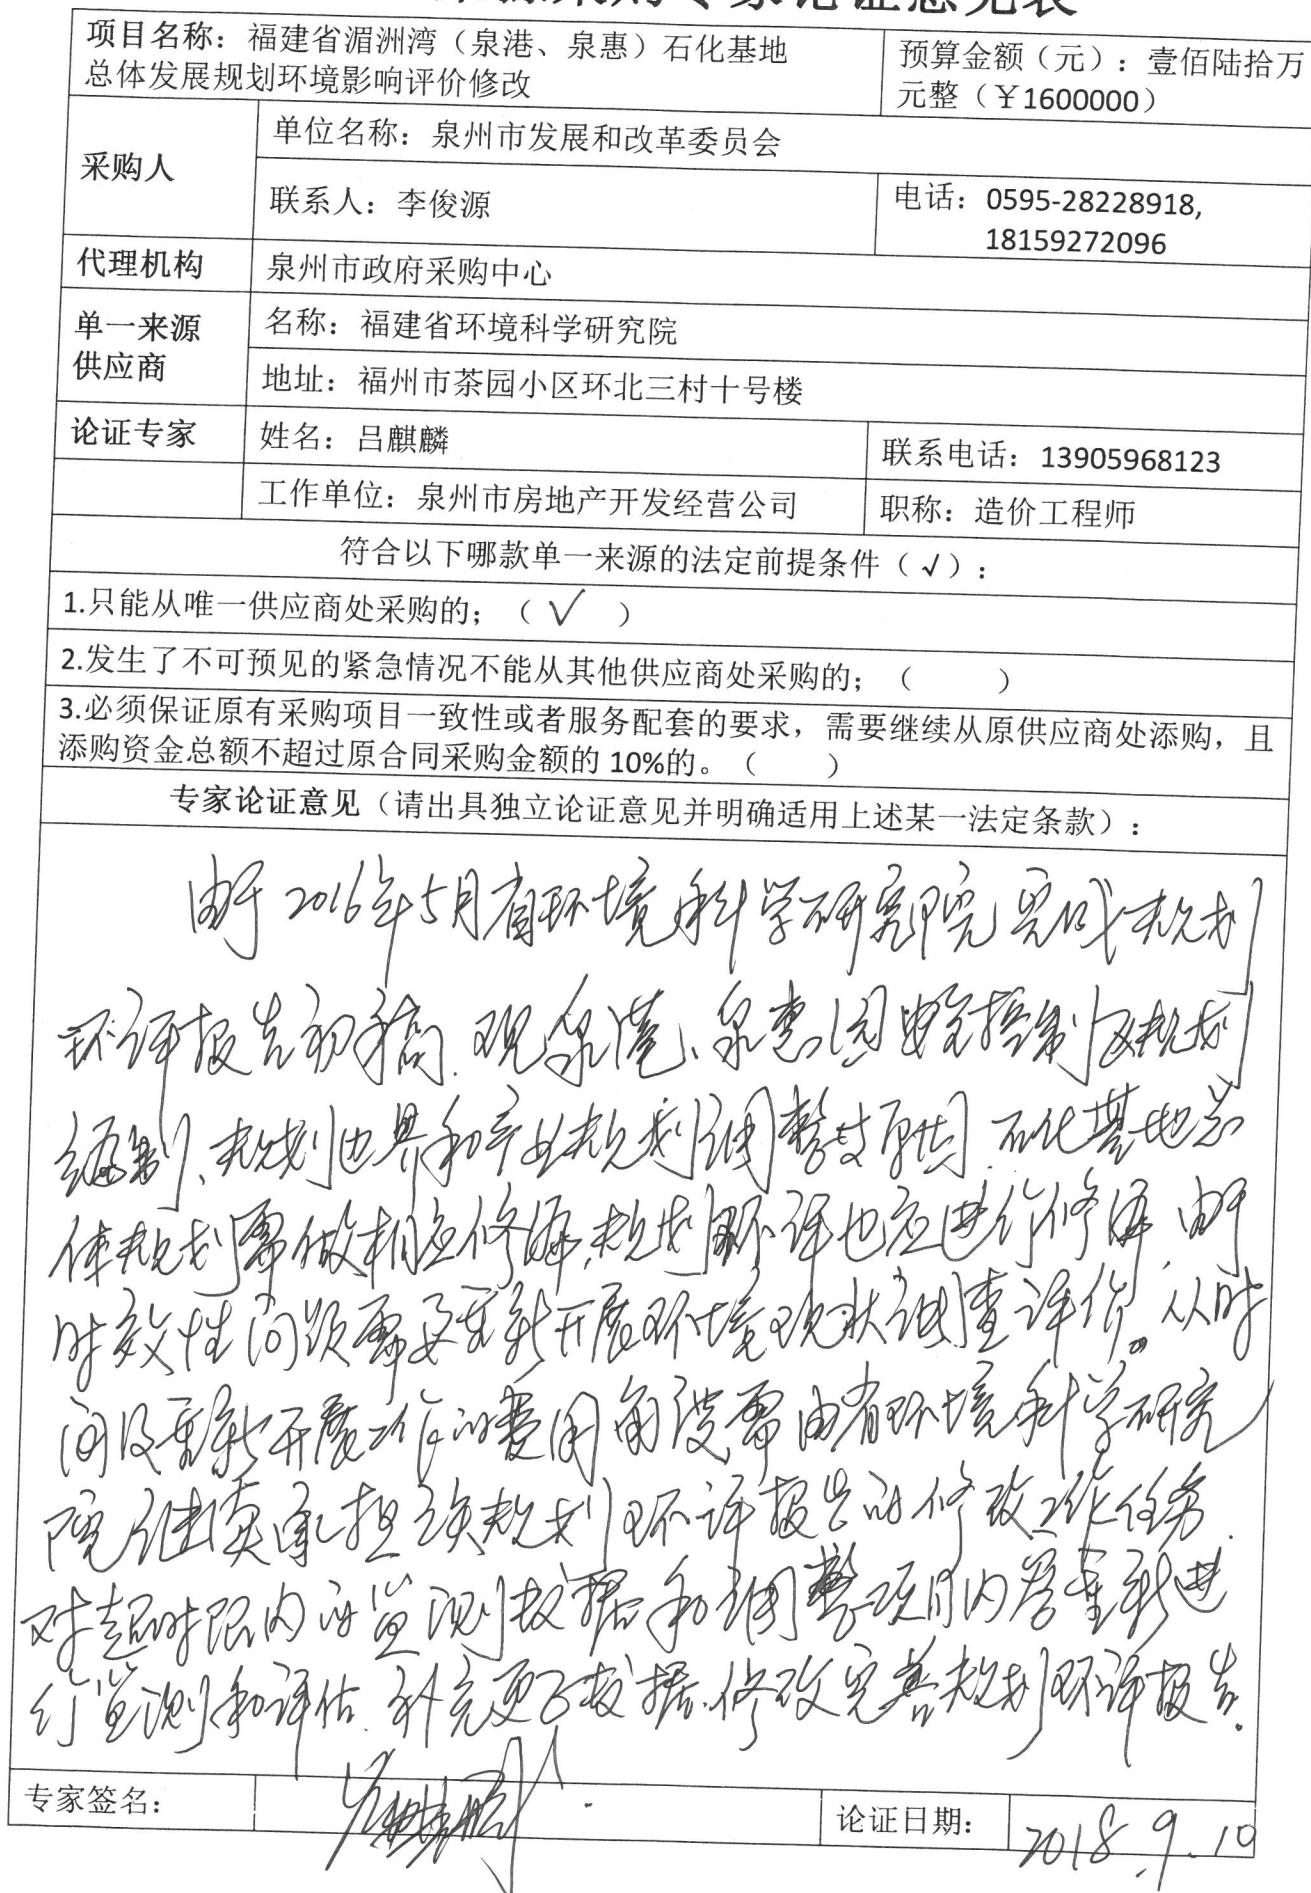 专家论证意见表
项目名称：福建省湄洲湾（泉港、泉惠）石化基地
总体发展规划环境影响评价修改
预算金额（元）：壹佰陆拾万
元整（￥1600000）
采购人
单位名称：泉州市发展和改革委员会
联系人：李俊源
电话：0595-28228918,
18159272096
代理机构
泉州市政府采购中心
单一来源
供应商
名称：福建省环境科学研究院
地址：福州市茶园小区环北三村十号楼
论证专家
姓名：吕麒麟
联系电话：13905968123
工作单位：泉州市房地产开发经营公司
职称：造价工程师
符合以下哪款单一来源的法定前提条件（√）：
1.只能从唯一供应商处采购的；（√）
2.发生了不可预见的紧急情况不能从其他供应商处采购的；（ ）
3.必须保证原有采购项目一致性或者服务配套的要求，需要继续从原供应商处添购，且
添购资金总额不超过原合同采购金额的 10%的。（ ）
专家论证意见（请出具独立论证意见并明确适用上述某一法定条款）：
由于2016年5月省环境科学研究院完成规划
环评报告初稿，现泉港、泉惠园安全控制区规划
编制、规划边界和产业规划调整等原因，石化基地总
体规划需做相应修编，规划环评也应进行修编，由于
时效性问题需要重新开展环境现状调查评价。从时
间及重新开展工作的费用角度需由省环境科学研究
院继续承担该规划环评报告的修改工作任务，
对超时限内的监测数据和调整项目内容重新进
行监测和评估，补充更了数据，修改完善规划环评报告。
专家签名：
吕麒麟
论证日期：
2018.9.10